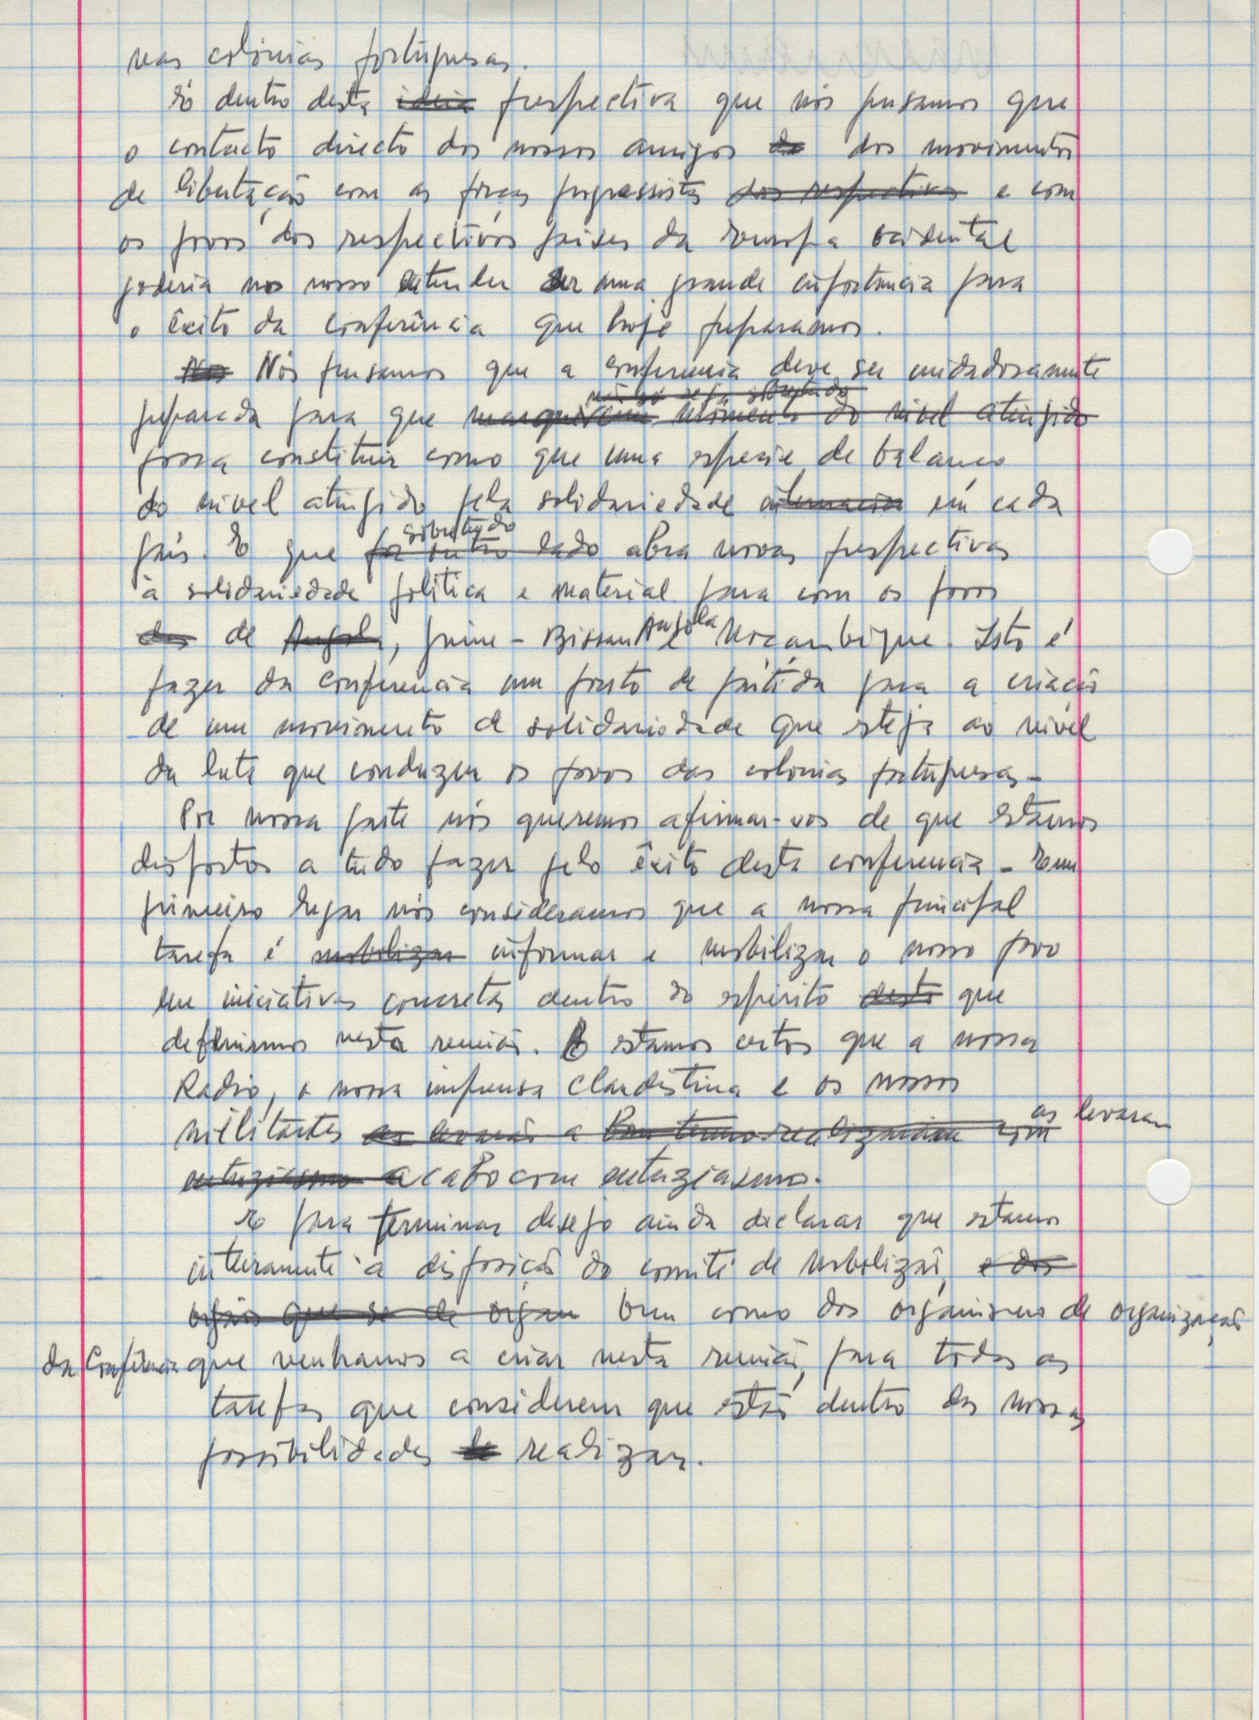 nas colónias portuguesas.
É dentro desta ideia perspectiva que nós pensamos que
o contacto directo dos nossos amigos do dos movimentos
de libertação com as forças progressistas dos respectivos e com
os povos dos respectivos países da Europa ocidental
poderia no nosso entender ser uma grande importancia para
o êxito da conferência que hoje preparamos.
Nos Nós pensamos que a conferencia deve ser cuidadosamente
não só seja sobretudo
preparada para que do nivel atingido
possa constituir como que uma especie de balanço
do nivel atingido pela solidariedade internacion em cada
sobretudo
país. E que por outro lado abra novas perspectivas
à solidariedade política e material para com os povos
das de Angola, Guine-Bissau Angola e Moçambique. Isto é
fazer da conferencia um ponto de pártida para a criação
de um movimento de solidariedade que esteja ao nivel
da luta que conduzem os povos das colonias portuguesas-
Por nossa parte nós queremos afirmar-vos de que estamos
dispostos a tudo fazer pelo êxito desta conferencia - Em
primeiro lugar nós consideramos que a nossa principal
tarefa é mobilizar informar e mobilizar o nosso povo
em iniciativas concretas dentro do espirito desta que
definirmos nesta reunião. E estamos certos que a nossa
Radio, a nossa imprensa clandestina e os nossos
militantes as levarão a bom termo realizariam com as levaram
entuziasmo a cabo com entuziasmo.
E para terminar desejo ainda declarar que estamos
inteiramente à disposição do comité de mobilizaçã, e dos
orgãos que se de organ bem como dos organismos de organização
da Conferência que venhamos a criar nesta reunião, para todas as
tarefas que considerem que estão dentro das nossas
possibilidades de realizar.